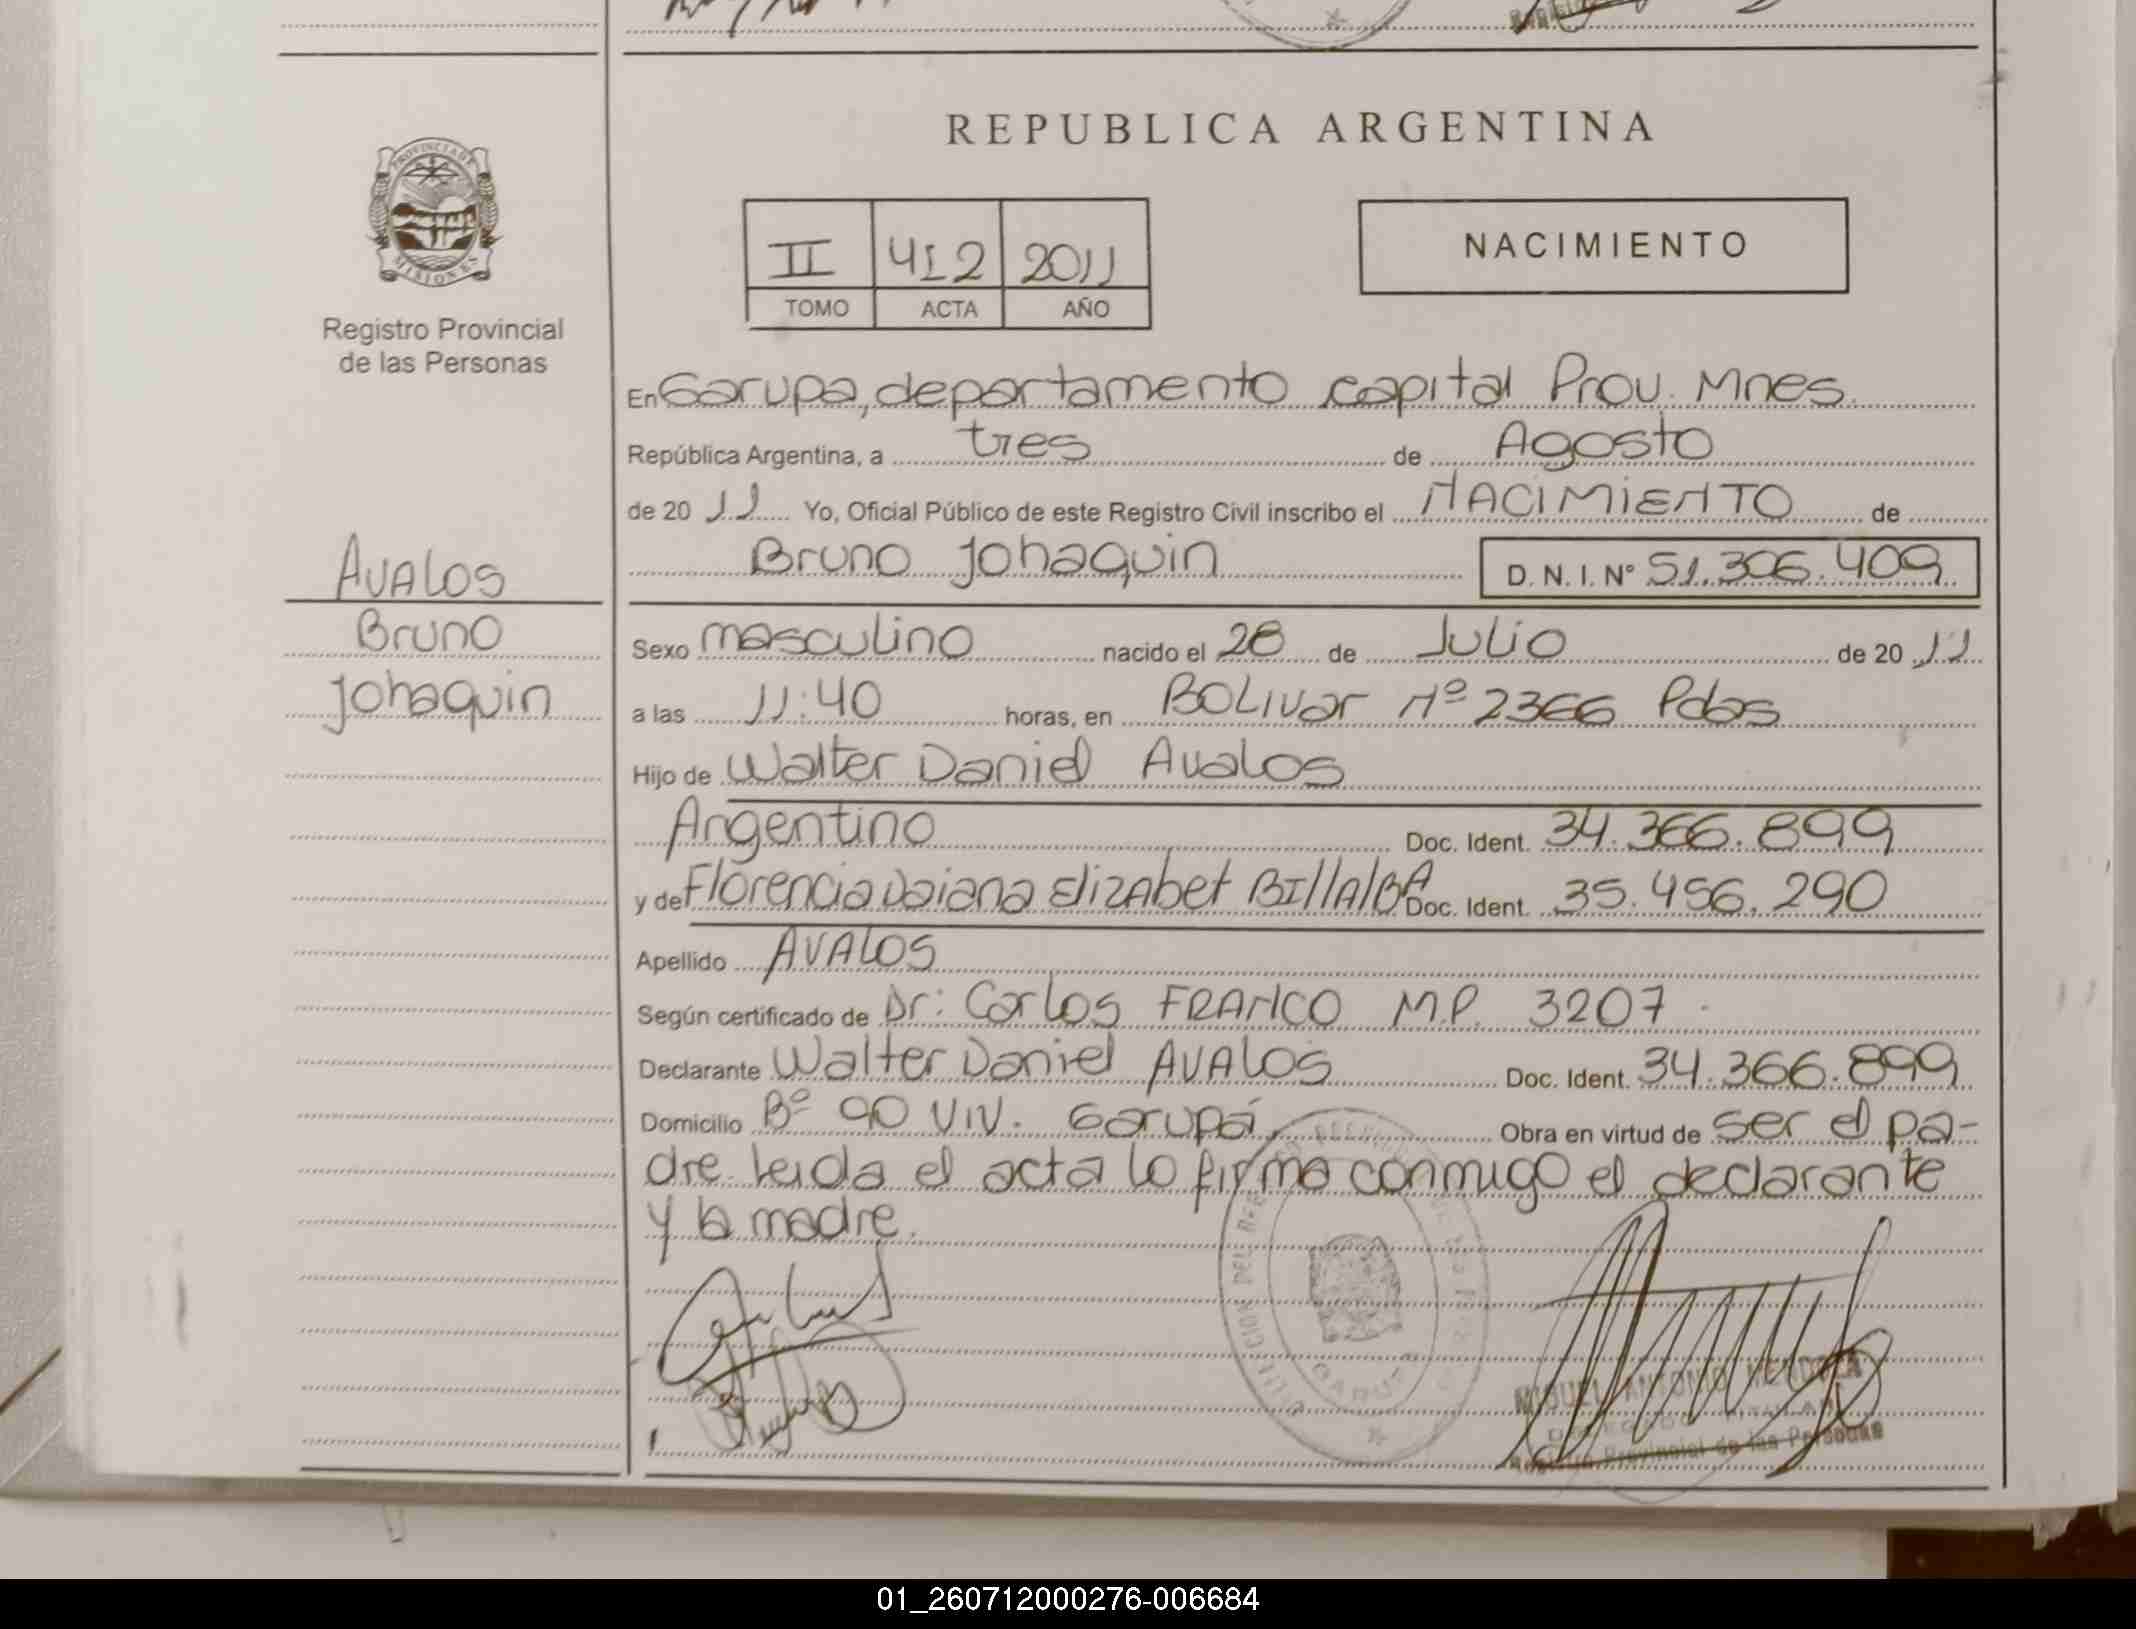 REPUBLICA ARGENTINA
PROVINCIA DE MISIONES
Registro Provincial
de las Personas
II 412 2011
TOMO ACTA AÑO
NACIMIENTO
En Garupa, departamento capital Prov. Mnes.
República Argentina, a tres de Agosto
de 20 11 Yo, Oficial Público de este Registro Civil inscribo el NACIMIENTO de
Bruno Johaquin D. N. I. Nº 51.306.409
AVALOS
Bruno
Johaquin
Sexo masculino nacido el 28 de Julio de 20 11
a las 11:40 horas, en BOLIVAR Nº 2366 Pdas
Hijo de Walter Daniel Avalos
Argentino Doc. Ident. 34.366.899
y de Florencia Daiana Elizabet BillalBA Doc. Ident. 35.456.290
Apellido AVALOS
Según certificado de Dr: Carlos FRANCO M.P. 3207
Declarante Walter Daniel AVALOS Doc. Ident. 34.366.899
Domicilio Bº 90 VIV. Garupá, Obra en virtud de ser el pa-
dre. Leida el acta lo firma conmigo el declarante
y la madre.
GARUPA
MIGUEL ANTONIO MENDOZA
DELEGADO TITULAR
Registro Provincial de las Personas
01_260712000276-006684